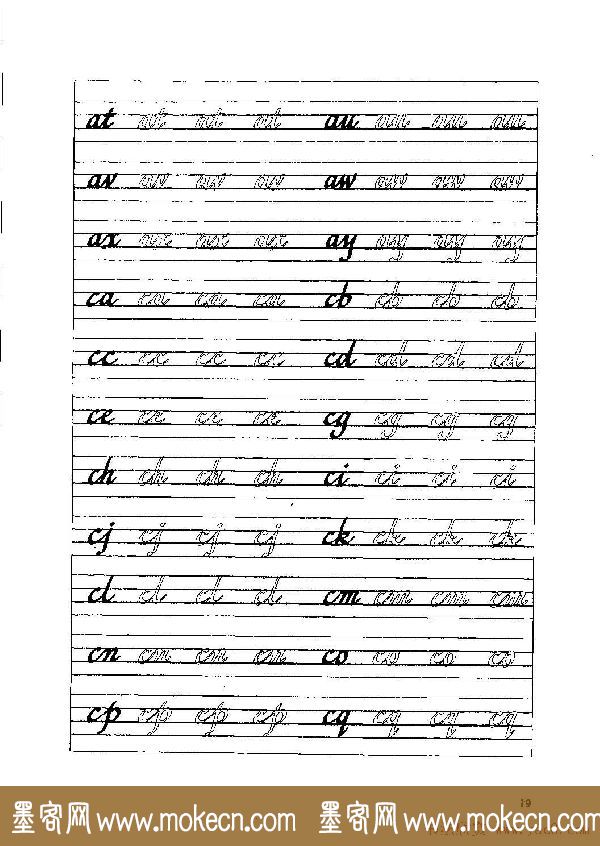 at at at at au au au au
av av av av aw aw aw aw
ax ax ax ax ay ay ay ay
ca ca ca ca cb cb cb cb
cc cc cc cc cd cd cd cd
ce ce ce ce cg cg cg cg
ch ch ch ch ci ci ci ci
cj cj cj cj ck ck ck ck
cl cl cl cl cm cm cm cm
cn cn cn cn co co co co
cp cp cp cp cq cq cq cq
19
墨客网 www.mokecn.com 墨客网 www.mokecn.com